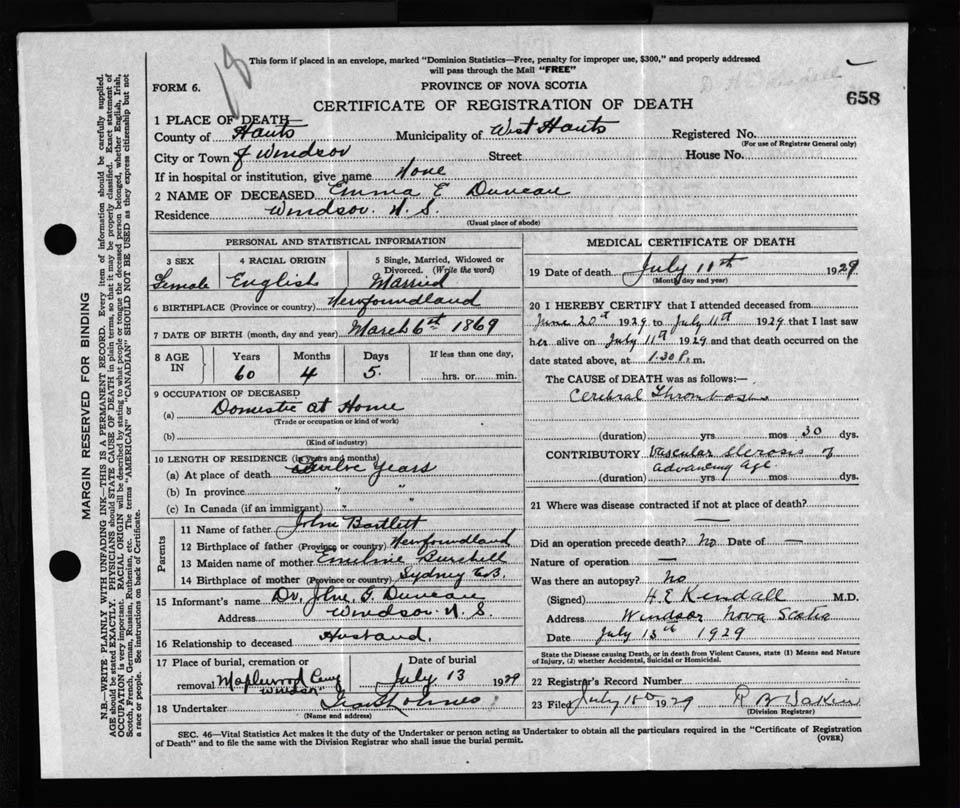 18
This form if placed in an envelope, marked "Dominion Statistics—Free, penalty for improper use, $300," and properly addressed
will pass through the Mail "FREE"
FORM 6.
PROVINCE OF NOVA SCOTIA
CERTIFICATE OF REGISTRATION OF DEATH
658
1 PLACE OF DEATH—
County of Hants Municipality of West Hants Registered No.
(For use of Registrar General only)
City or Town of Windsor Street House No.
If in hospital or institution, give name None
2 NAME OF DECEASED Emma E Duncan
Residence Windsor. N. S.
(Usual place of abode)
PERSONAL AND STATISTICAL INFORMATION
3 SEX 4 RACIAL ORIGIN 5 Single, Married, Widowed or
Divorced. (Write the word)
Female English Married
6 BIRTHPLACE (Province or country) Newfoundland
7 DATE OF BIRTH (month, day and year) March 6th 1869
8 AGE IN Years Months Days If less than one day,
60 4 5. hrs. or min.
9 OCCUPATION OF DECEASED
(a) Domestic at Home
(Trade or occupation or kind of work)
(b)
(Kind of industry)
10 LENGTH OF RESIDENCE (in years and months)
(a) At place of death Twelve Years
(b) In province " "
(c) In Canada (if an immigrant) " "
Parents
11 Name of father John Bartlett
12 Birthplace of father (Province or country) Newfoundland
13 Maiden name of mother Burchell
14 Birthplace of mother (Province or country) Sydney C.B.
15 Informant's name Dr. John G. Duncan
Address Windsor. N. S
16 Relationship to deceased Husband.
17 Place of burial, cremation or Date of burial
removal Maplewood Cemy July 13 1929
Windsor
18 Undertaker Holmes
(Name and address)
MEDICAL CERTIFICATE OF DEATH
19 Date of death July 11th 1929
(Month, day and year)
20 I HEREBY CERTIFY that I attended deceased from
June 20th 1929 to July 11th 1929 that I last saw
her alive on July 11th 1929 and that death occurred on the
date stated above, at 1.30 P.m.
The CAUSE OF DEATH was as follows:—
Cerebral Thrombosis
(duration) yrs mos 30 dys.
CONTRIBUTORY Vascular Sclerosis of
advancing age.
(duration) yrs. mos dys.
21 Where was disease contracted if not at place of death?
—
Did an operation precede death? No Date of —
Nature of operation —
Was there an autopsy? No
(Signed) H E Kendall M.D.
Address Windsor Nova Scotia
Date July 13th 1929
State the Disease causing Death, or in death from Violent Causes, state (1) Means and Nature
of Injury, (2) whether Accidental, Suicidal or Homicidal.
22 Registrar's Record Number
23 Filed July 1929
(Division Registrar)
SEC. 46—Vital Statistics Act makes it the duty of the Undertaker or person acting as Undertaker to obtain all the particulars required in the "Certificate of Registration
of Death" and to file the same with the Division Registrar who shall issue the burial permit.
(OVER)
MARGIN RESERVED FOR BINDING
N.B.—WRITE PLAINLY WITH UNFADING INK—THIS IS A PERMANENT RECORD. Every item of information should be carefully supplied.
AGE should be stated EXACTLY. PHYSICIANS should STATE CAUSE OF DEATH in plain terms, so that it may be properly classified. Exact statement of
OCCUPATION is very important. RACIAL ORIGIN will be described by stating to what people or tongue the deceased person belonged, whether English, Irish,
Scotch, French, German, Russian, Ruthenian, etc. The terms "AMERICAN" or "CANADIAN" SHOULD NOT BE USED as they express citizenship but not
a race or people. See instructions on back of Certificate.